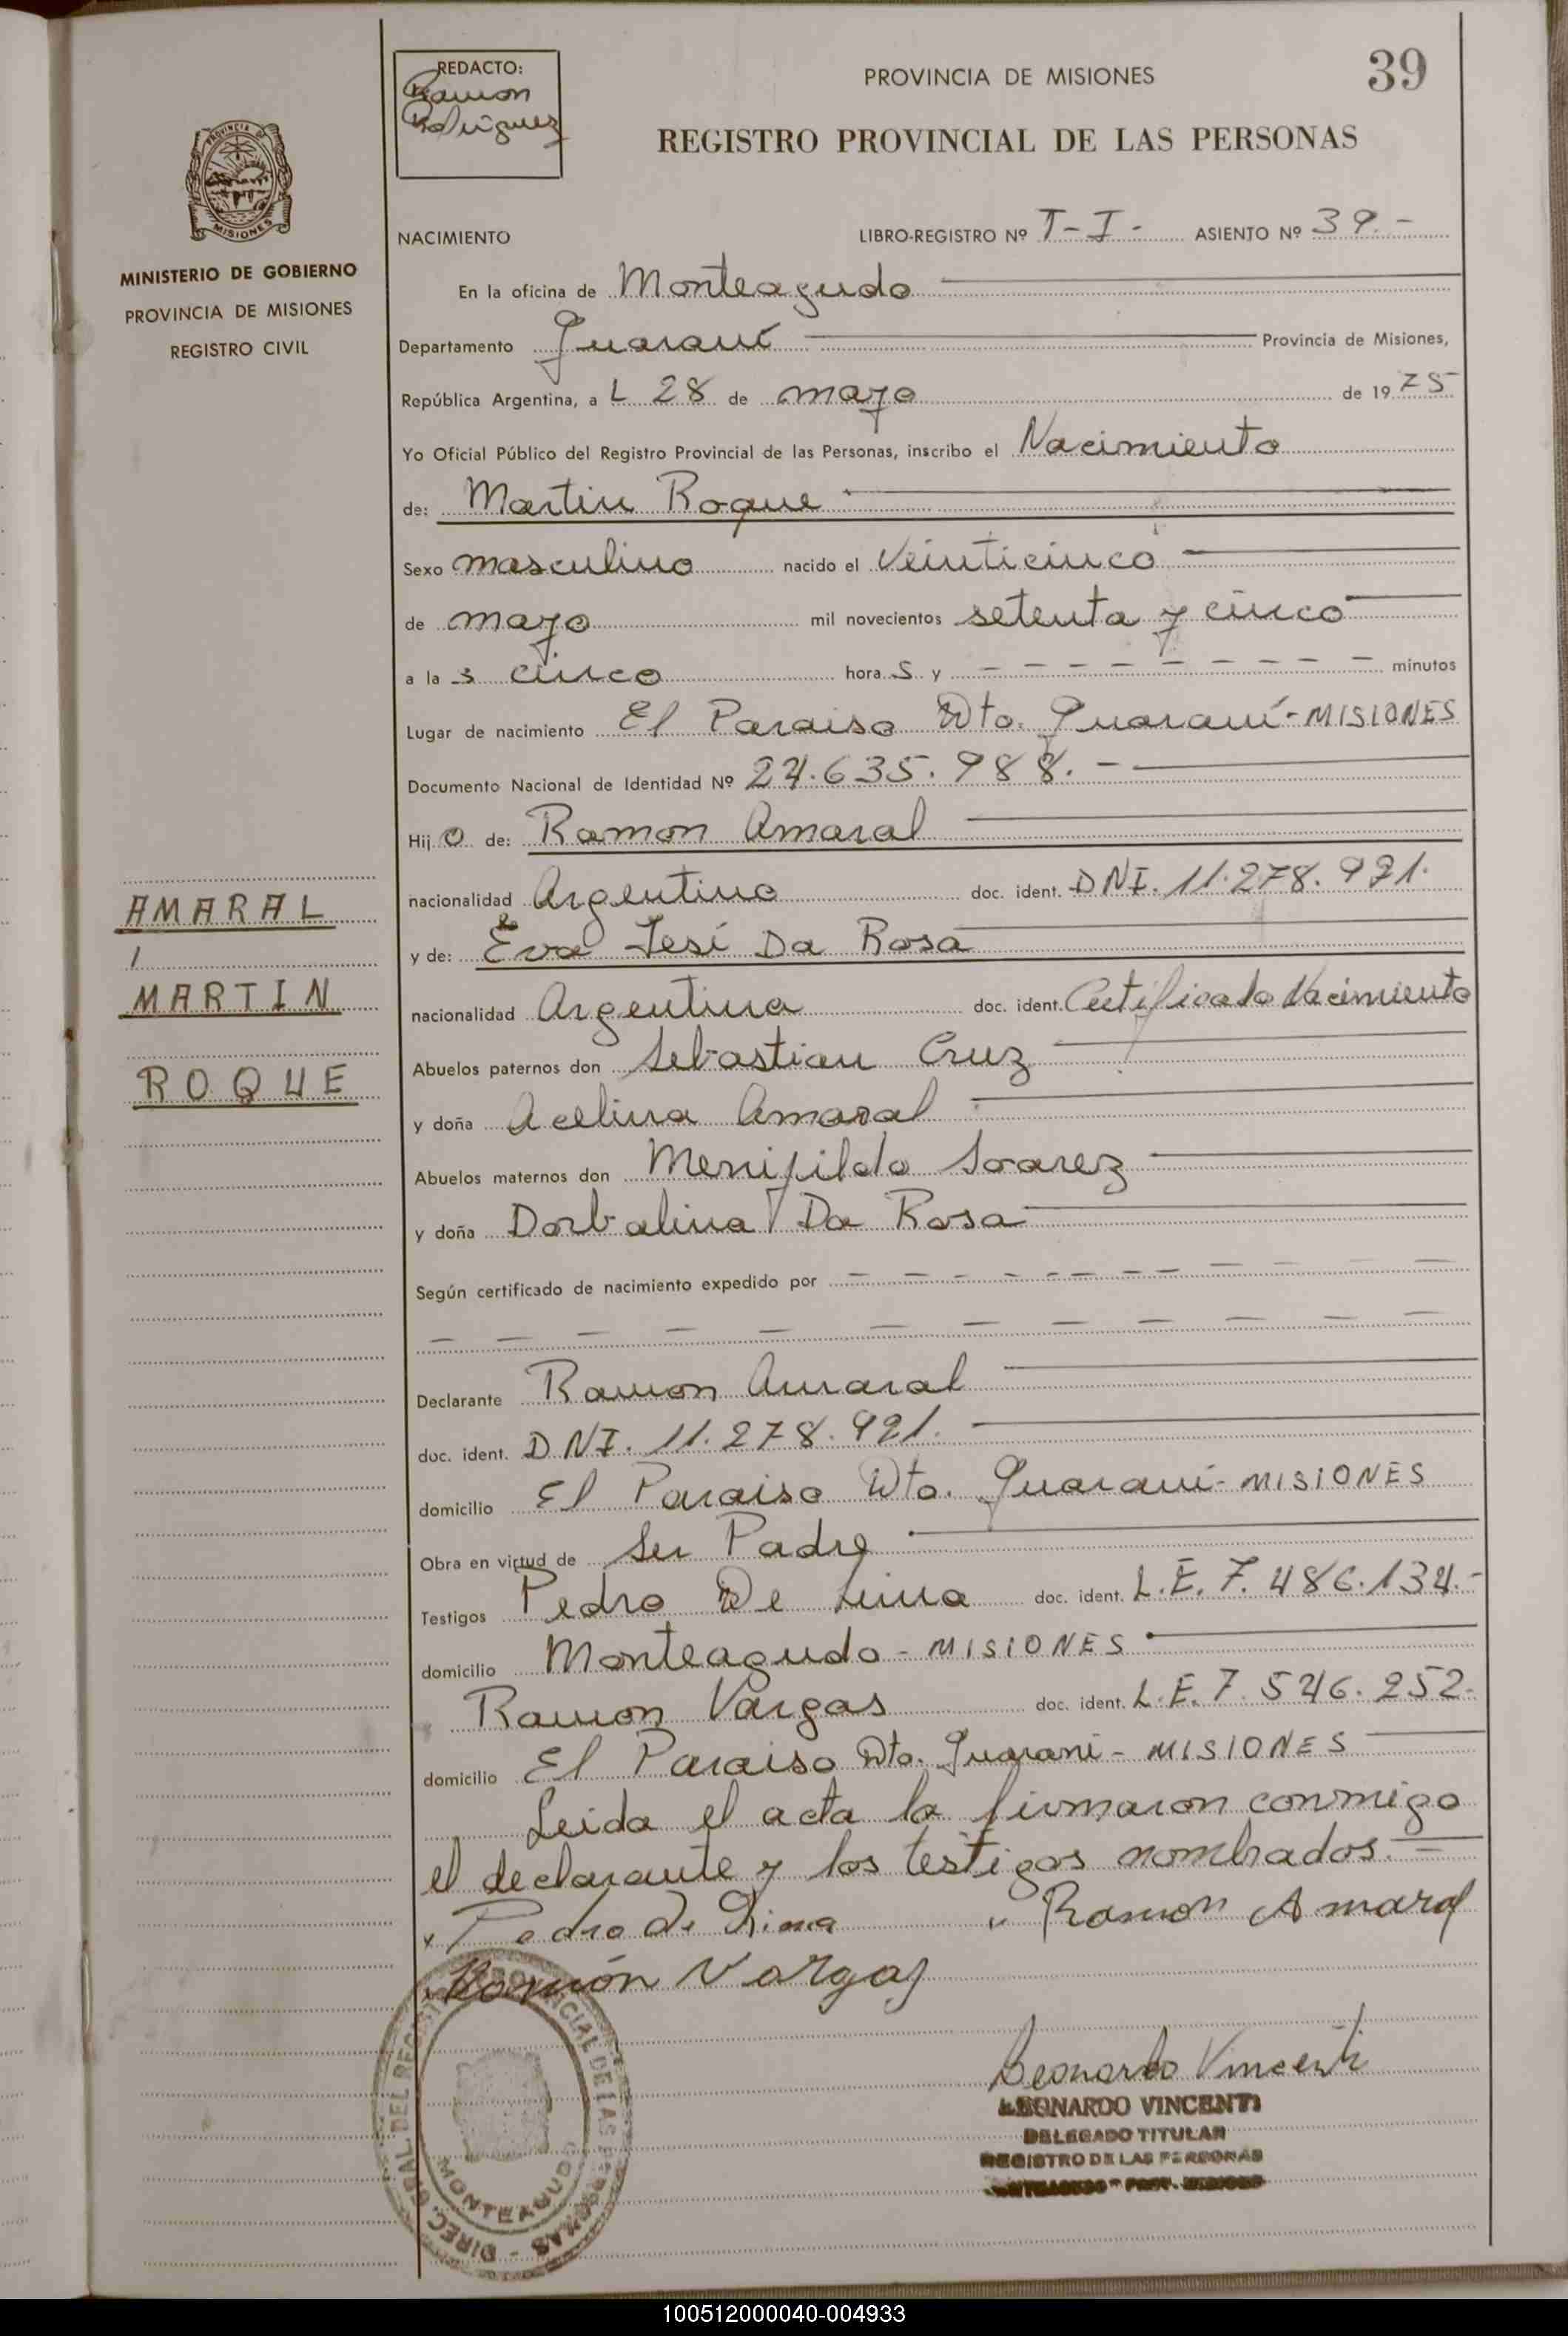 39
REDACTO:
Ramon
Rodriguez
PROVINCIA DE MISIONES
REGISTRO PROVINCIAL DE LAS PERSONAS
PROVINCIA DE
MISIONES
MINISTERIO DE GOBIERNO
PROVINCIA DE MISIONES
REGISTRO CIVIL
NACIMIENTO LIBRO-REGISTRO Nº T-I- ASIENTO Nº 39.-
En la oficina de Monteagudo
Departamento Guaraní Provincia de Misiones,
República Argentina, a L 28 de mayo de 1975
Yo Oficial Público del Registro Provincial de las Personas, inscribo el Nacimiento
de: Martin Roque
Sexo masculino nacido el Veinticinco
de mayo mil novecientos setenta y cinco
a las cinco horas y - - - - - - - - minutos
Lugar de nacimiento El Paraiso Dto. Guaraní-MISIONES
Documento Nacional de Identidad Nº 24.635.988.-
Hijo de: Ramon Amaral
nacionalidad Argentino doc. ident. DNI. 11.278.921.
y de: Eva Jesí Da Rosa
nacionalidad Argentina doc. ident. Certificado Nacimiento
Abuelos paternos don Sebastian Cruz
y doña Acelina Amaral
Abuelos maternos don Menijildo Soarez
y doña Dorbalina Da Rosa
Según certificado de nacimiento expedido por - - - - - - - - - - -
- - - - - - - - - - - -
Declarante Ramon Amaral
doc. ident. DNI. 11.278.921.
domicilio El Paraiso Dto. Guaraní-MISIONES
Obra en virtud de Ser Padre
Testigos Pedro De Lima doc. ident. L.E. 7.486.134.-
domicilio Monteagudo - MISIONES
Ramon Vargas doc. ident. L.E. 7.546.252.
domicilio El Paraiso Dto. Guarani - MISIONES
Leida el acta la firmaron conmigo
el declarante y los testigos nombrados.-
Pedro de Lima Ramon Amaral
Ramón Vargas
AMARAL
MARTIN
ROQUE
Leonardo Vincenti
LEONARDO VINCENTI
DELEGADO TITULAR
REGISTRO DE LAS PERSONAS
DIREC. GRAL. DEL REGISTRO PROVINCIAL DE LAS PERSONAS -
MONTEAGUDO
100512000040-004933